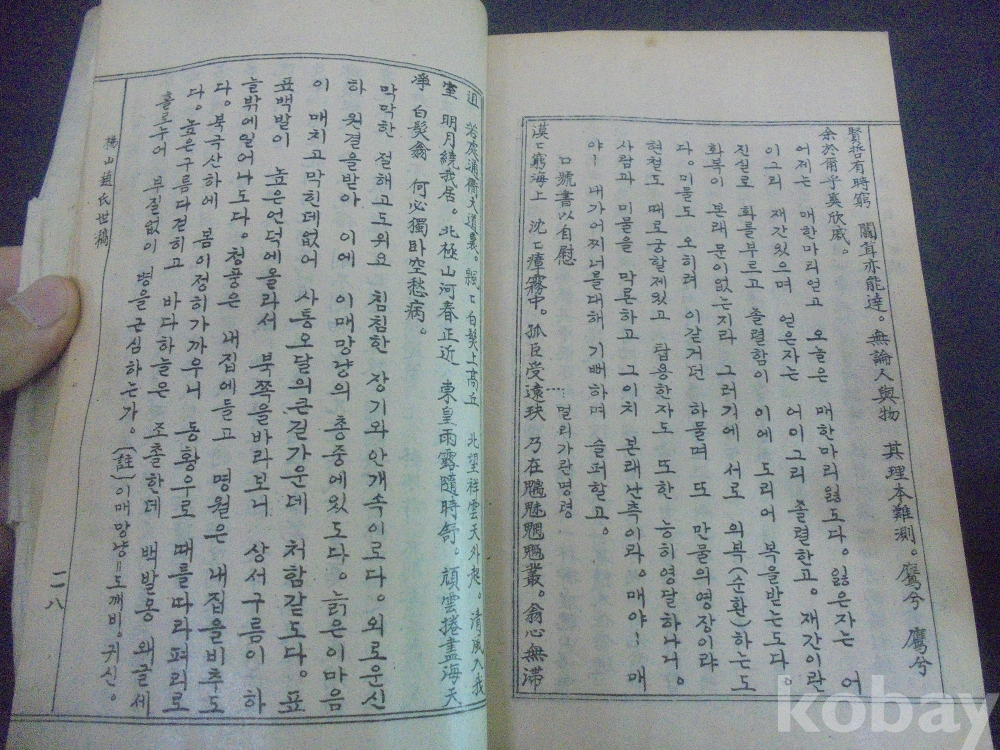 賢哲有時窮 闒茸亦能達。無論人與物 其理本難測。鷹兮 鷹兮
余於爾乎奚欣慼。
어제는 매한마리얻고 오늘은 매한마리잃도다。잃은자는 어
이그리 재간있으며 얻은자는 어이그리 졸렬한고。재간이란
진실로 화를부르고 졸렬함이 이에 도리어 복을받는도다。
화복이 본래문이없는지라 그러기에 서로 의복(순환)하는도
다。미물도 오히려 이같거던 하물며 또 만물의영장이랴
현철도 때로궁할제있고 탑용한자도 또한 능히영달하나니。
사람과 미물을 막론하고 그이치 본래난측이라。매야! 매
야! 내가어찌너를대해 기뻐하며 슬퍼할고。
口號書以自慰 멀리가란명령
漠漠窮海上 沈沈瘴霧中。孤臣受遠玦 乃在魑魅魍魎叢。翁心無滯
迫 若處通衢大道裏。飄飄白髮上高丘 北望祥雲天外起。清風入我
室 明月繞我居。北極山河春正近 東皇雨露隨時舒。頑雲捲盡海天
凈 白髮翁 何必獨卧空愁病。
막막한 절해고도위요 침침한 장기와안개속이로다。외로운신
하 원결을받아 이에 이매망량의 총중에있도다。늙은이마음
이 매치고막힌데없어 사통오달의큰길가운데 처함같도다。표
표백발이 높은언덕에올라서 북쪽을바라보니 상서구름이 하
늘밖에일어나도다。청풍은 내집에들고 명월은 내집을비추도
다。북극산하에 봄이정히가까우니 동황우로 때를따라펴리로
다。높은구름다걷히고 바다하늘은 조촐한데 백발옹 왜글세
홀로누어 부질없이 병을근심하는가。(註)이매망량=도깨비。귀신。
楊山趙氏世稿
二八
kobay